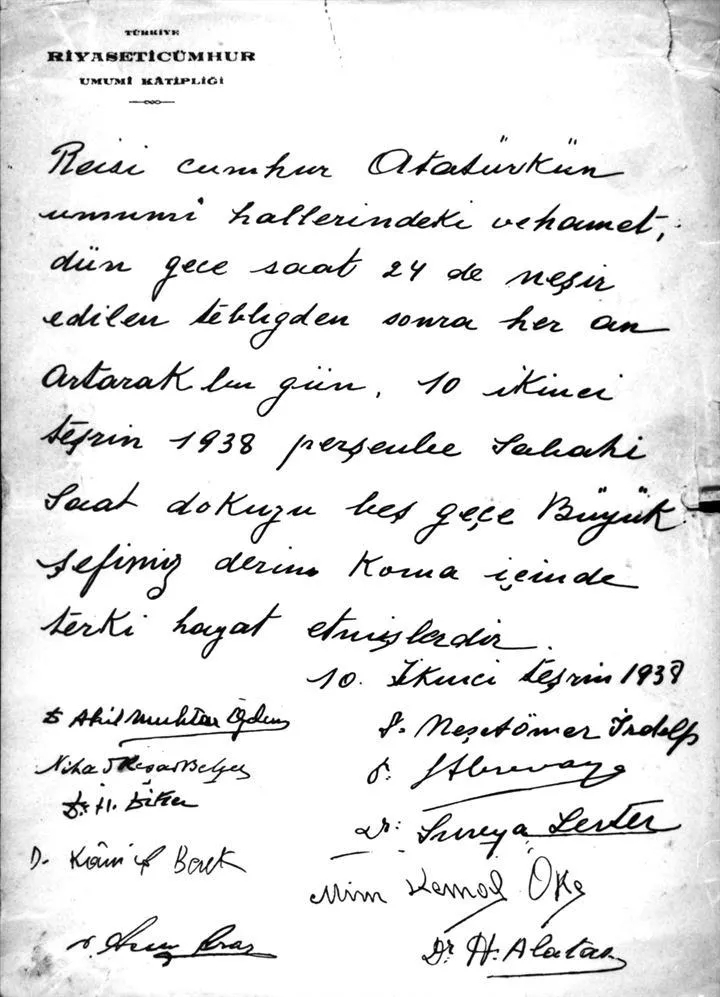 TÜRKİYE
RİYASETİCÜMHUR
UMUMİ KÂTİPLİĞİ
Reisi cumhur Atatürkün
umumi hallerindeki vehamet,
dün gece saat 24 de neşir
edilen tebligden sonra her an
artarak bu gün, 10 ikinci
teşrin 1938 perşenbe sabahi
saat dokuzu beş geçe Büyük
şefimiz derin koma içinde
terki hayat etmişlerdir.
10. İkinci teşrin 1938
Dr Akil Muhtar Özden
Dr. Neşetömer İrdelp
Nihad Reşad Belger
Dr.
Dr. H.
Dr: Sureya Serter
D. Kâmi Berk
Mim Kemal Öke
Dr.
Dr. H. Alataş